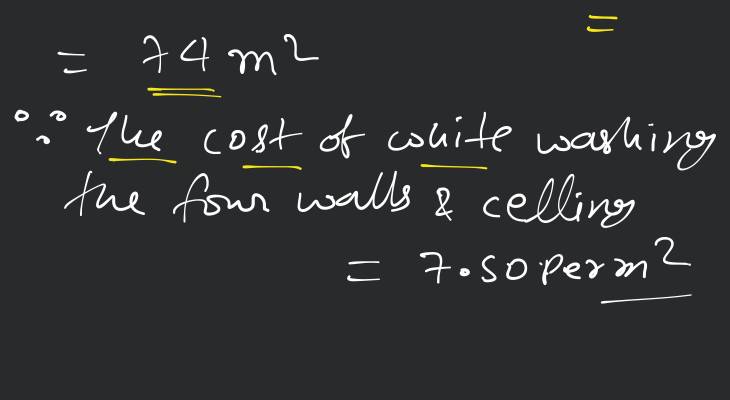 = 74 m²
∵ the cost of white washing
the four walls & celling
= 7.50 per m²